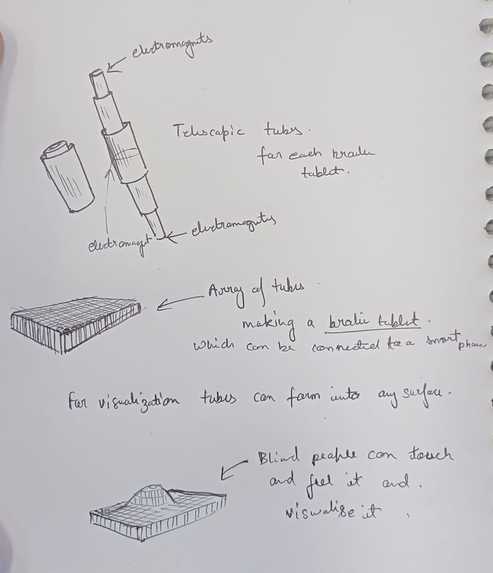 electromagnets
Telescopic tubes.
for each braille
tablet.
electromagnets
electromagnet
Array of tubes
making a braille tablet.
which can be connected to a smartphone
For visualization tubes can form into any surface.
Blind people can touch
and feel it and.
visualise it.